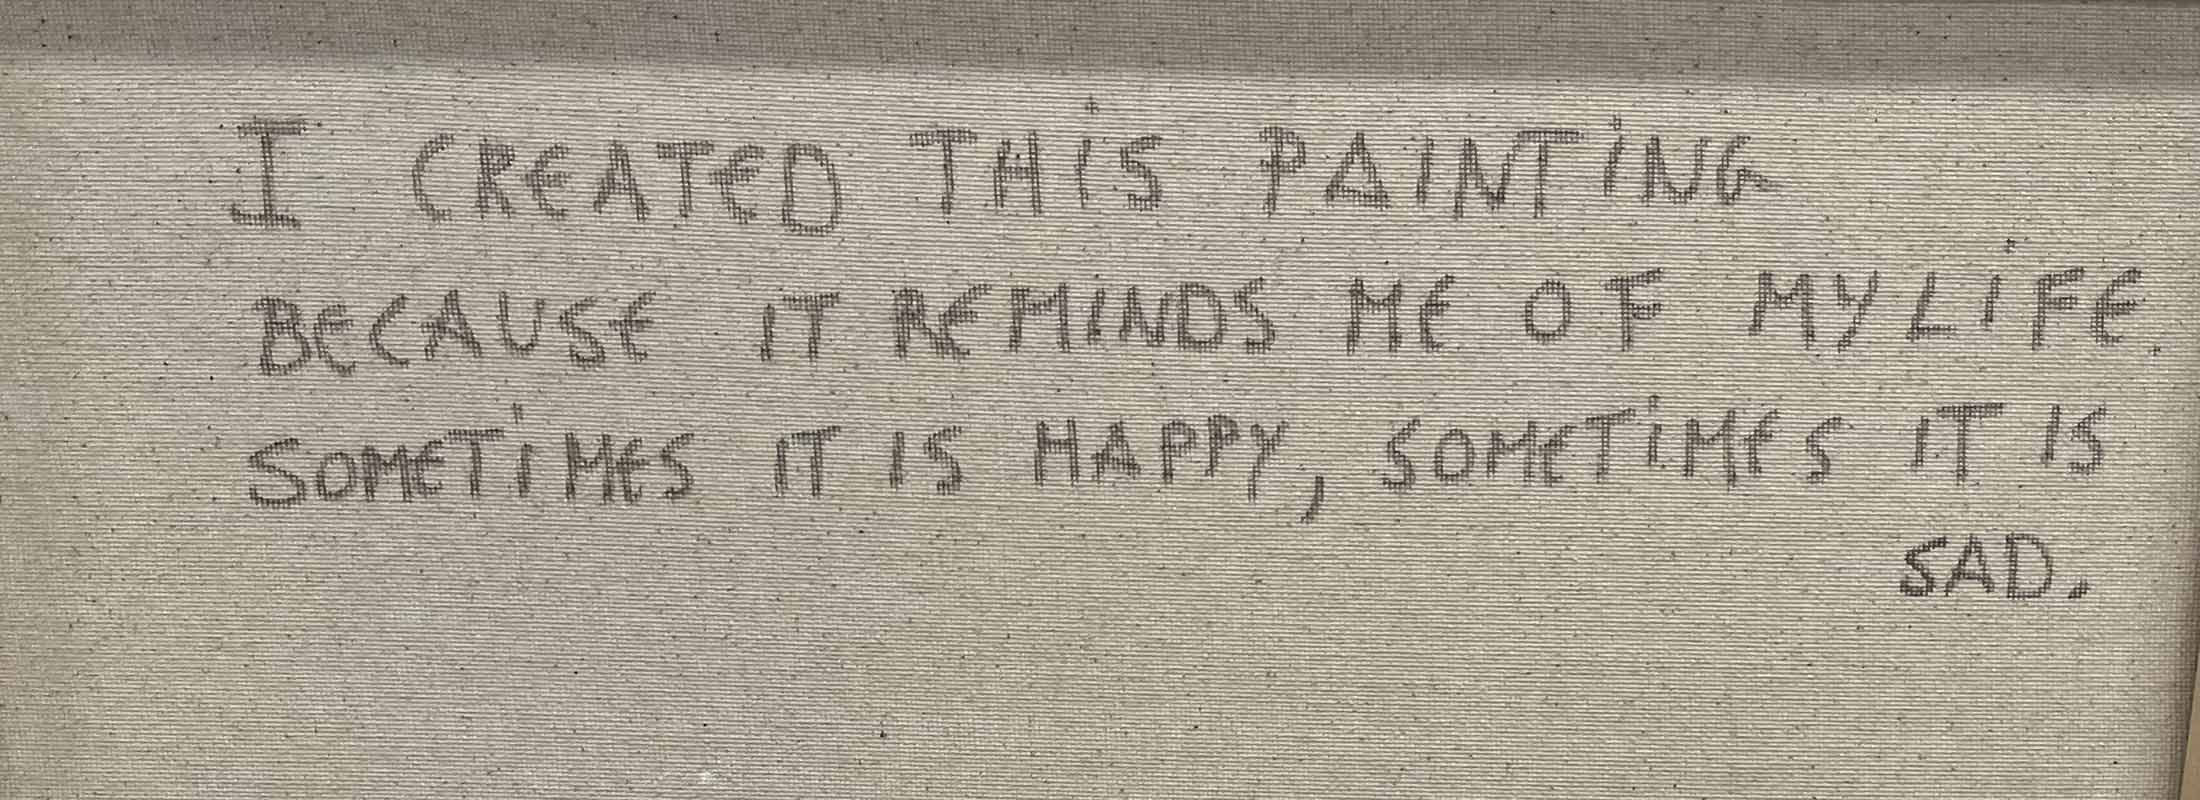 I CREATED THIS PAINTING
BECAUSE IT REMINDS ME OF MY LIFE.
SOMETIMES IT IS HAPPY, SOMETIMES IT IS
SAD.